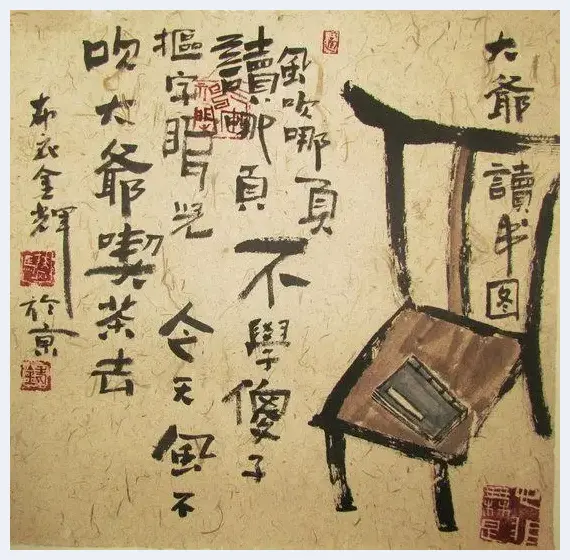 大爺讀书图
風吹哪頁
讀哪頁不學傻子
摳字眼兒今天風不
吹大爺喫茶去
布衣金輝
於京